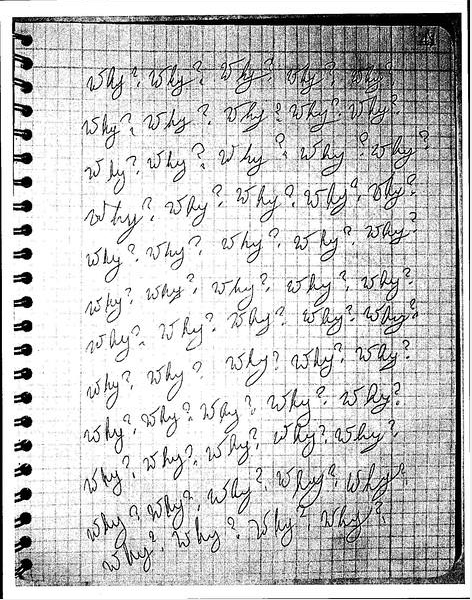 Why? Why? Why? Why? Why?
Why? Why? Why? Why? Why?
Why? Why? Why? Why? Why?
Why? Why? Why? Why? Why?
Why? Why? Why? Why? Why?
Why? Why? Why? Why? Why?
Why? Why? Why? Why? Why?
Why? Why? Why? Why? Why?
Why? Why? Why? Why? Why?
Why? Why? Why? Why? Why?
Why? Why? Why? Why? Why?
Why? Why? Why? Why?